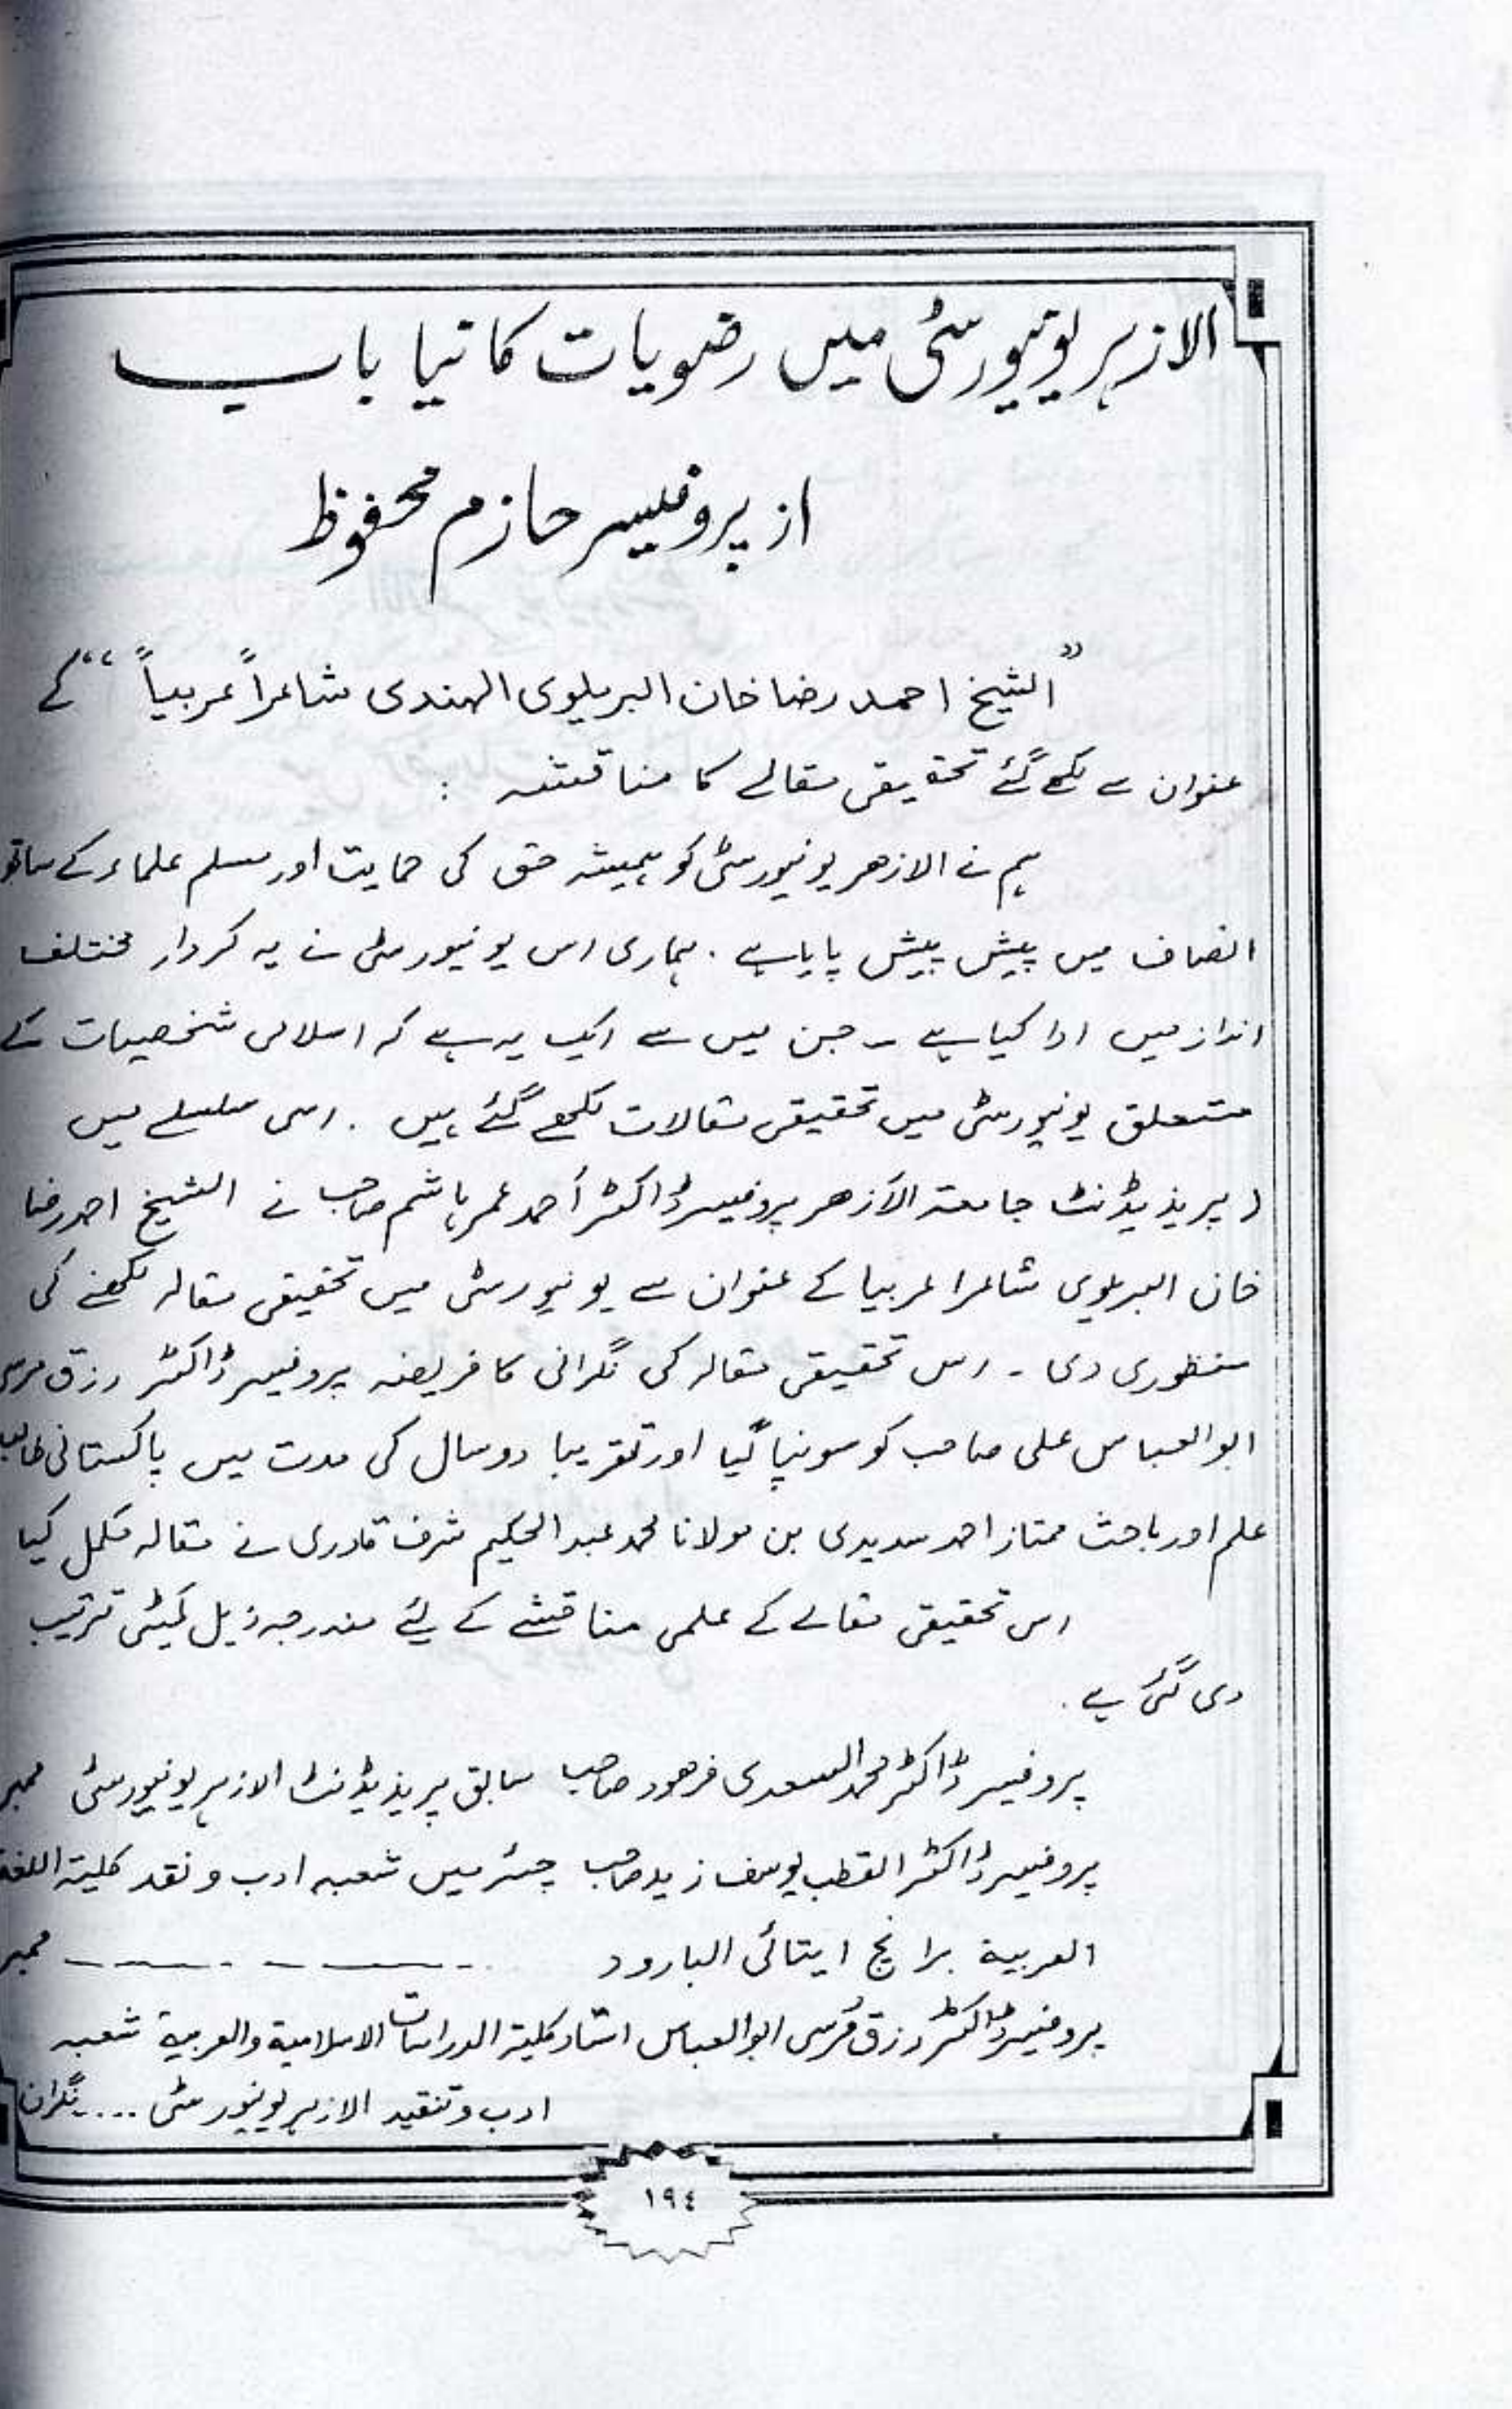 الازہر یونیورسٹی میں رضویات کا نیا باب
از پروفیسر حازم محفوظ
"الشیخ احمد رضا خان البریلوی الہندی شاعراً عربیاً" کے
عنوان سے لکھے گئے تحقیقی مقالے کا مناقشہ :
ہم نے الازھر یونیورسٹی کو ہمیشہ حق کی حمایت اور مسلم علماء کے ساتھ
انصاف میں پیش پیش پایا ہے . ہماری اس یونیورسٹی نے یہ کردار مختلف
انداز میں ادا کیا ہے ۔ جن میں سے ایک یہ ہے کہ اسلامی شخصیات کے
متعلق یونیورسٹی میں تحقیقی مقالات لکھے گئے ہیں . اسی سلسلے میں
( پریذیڈنٹ جامعۃ الأزھر پروفیسر ڈاکٹر أحمد عمر ہاشم صاحب نے الشیخ احمد رضا
خان البریلوی شاعرا عربیا کے عنوان سے یونیورسٹی میں تحقیقی مقالہ لکھنے کی
منظوری دی ۔ اس تحقیقی مقالہ کی نگرانی کا فریضہ پروفیسر ڈاکٹر رزق مرسی
ابو العباس علی صاحب کو سونپا گیا اور تقریبا دو سال کی مدت میں پاکستانی طالب
علم اور باحث ممتاز احمد سدیدی بن مولانا محمد عبد الحکیم شرف قادری نے مقالہ مکمل کیا
اس تحقیقی مقالے کے علمی مناقشے کے لئے مندرجہ ذیل کمیٹی ترتیب
دی گئی ہے .
پروفیسر ڈاکٹر محمد السعدی فرھود صاحب سابق پریذیڈنٹ الازہر یونیورسٹی ممبر
پروفیسر ڈاکٹر القطب یوسف زید صاحب چئرمیں شعبہ ادب و نقد کلیۃ اللغۃ
العربیۃ برانچ ایتائی البارود ـ ـ ـ ـ ـ ـ ـ ممبر
پروفیسر ڈاکٹر رزق مُرسی ابو العباس استاد کلیۃ الدراسات الاسلامیۃ والعربیۃ شعبہ
ادب و تنقید الازہر یونیورسٹی .... نگران
١٩٤